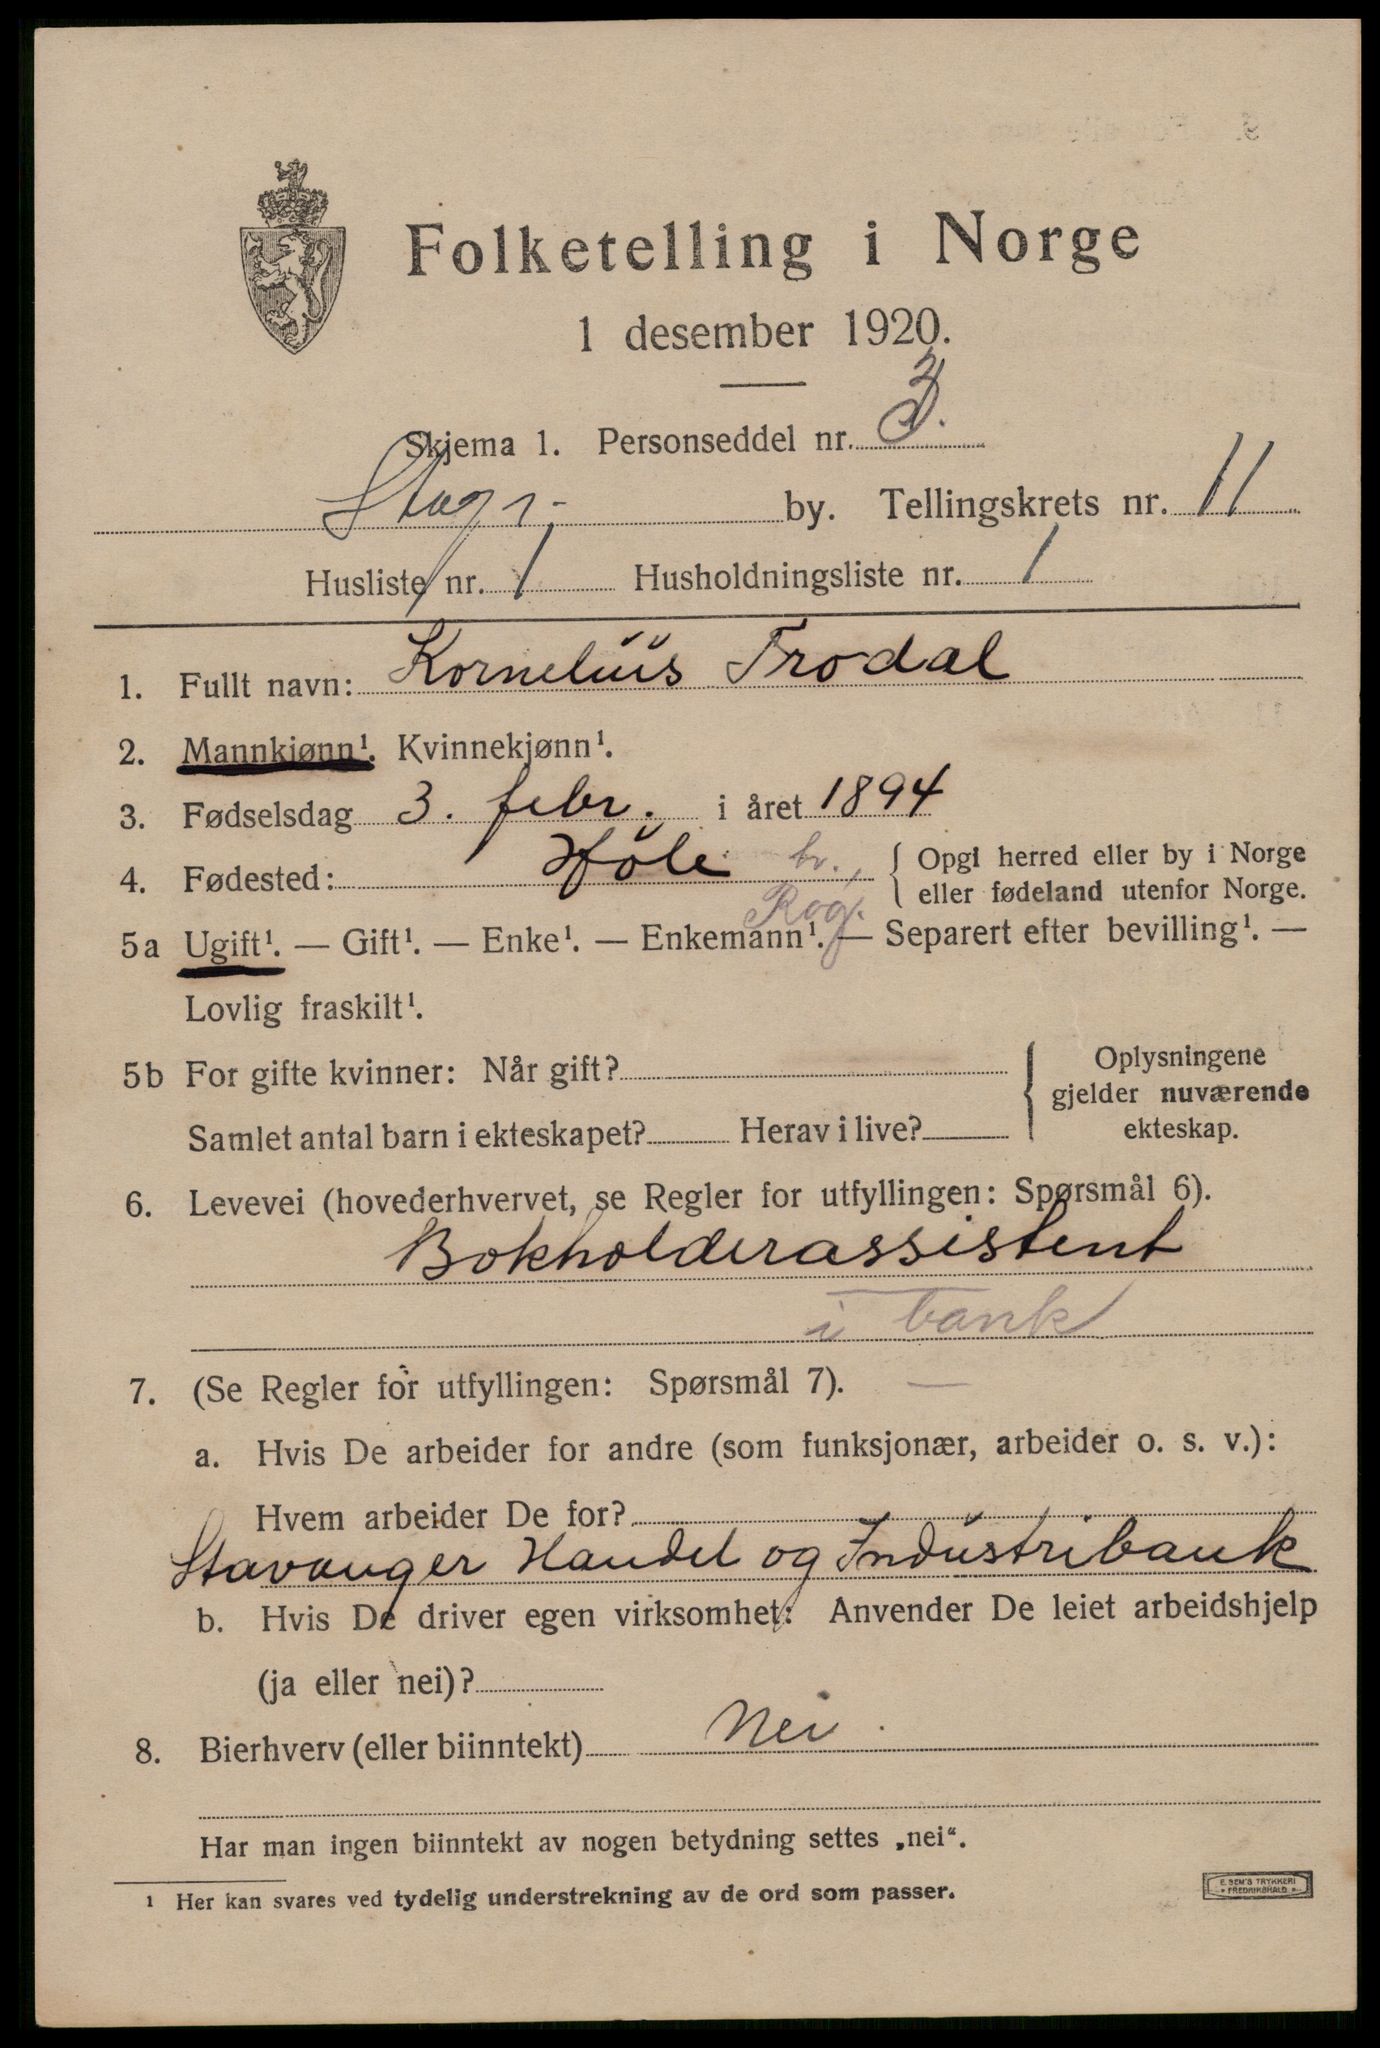 Folketelling i Norge
1 desember 1920.
Skjema 1. Personseddel nr. 3.
Stagr. by. Tellingskrets nr. 11
Husliste nr. 1 Husholdningsliste nr. 1
1. Fullt navn: Kornelius Frodal
2. Mannkjønn¹. Kvinnekjønn¹.
3. Fødselsdag 3. febr. i året 1894
4. Fødested: Høle hr., { Opgi herred eller by i Norge
eller fødeland utenfor Norge.
Rog.
5a Ugift¹. — Gift¹. — Enke¹. — Enkemann¹. — Separert efter bevilling¹. —
Lovlig fraskilt¹.
5b For gifte kvinner: Når gift?
Samlet antal barn i ekteskapet? Herav i live?
{ Oplysningene
gjelder nuværende
ekteskap.
6. Levevei (hovederhvervet, se Regler for utfyllingen: Spørsmål 6).
Bokholderassistent
i bank
7. (Se Regler for utfyllingen: Spørsmål 7). —
a. Hvis De arbeider for andre (som funksjonær, arbeider o. s. v.):
Hvem arbeider De for?
Stavanger Handel og Industribank
b. Hvis De driver egen virksomhet: Anvender De leiet arbeidshjelp
(ja eller nei)?
8. Bierhverv (eller biinntekt) Nei.
Har man ingen biinntekt av nogen betydning settes „nei“.
¹ Her kan svares ved tydelig understrekning av de ord som passer.
E. SEM'S TRYKKERI
FREDRIKSHALD